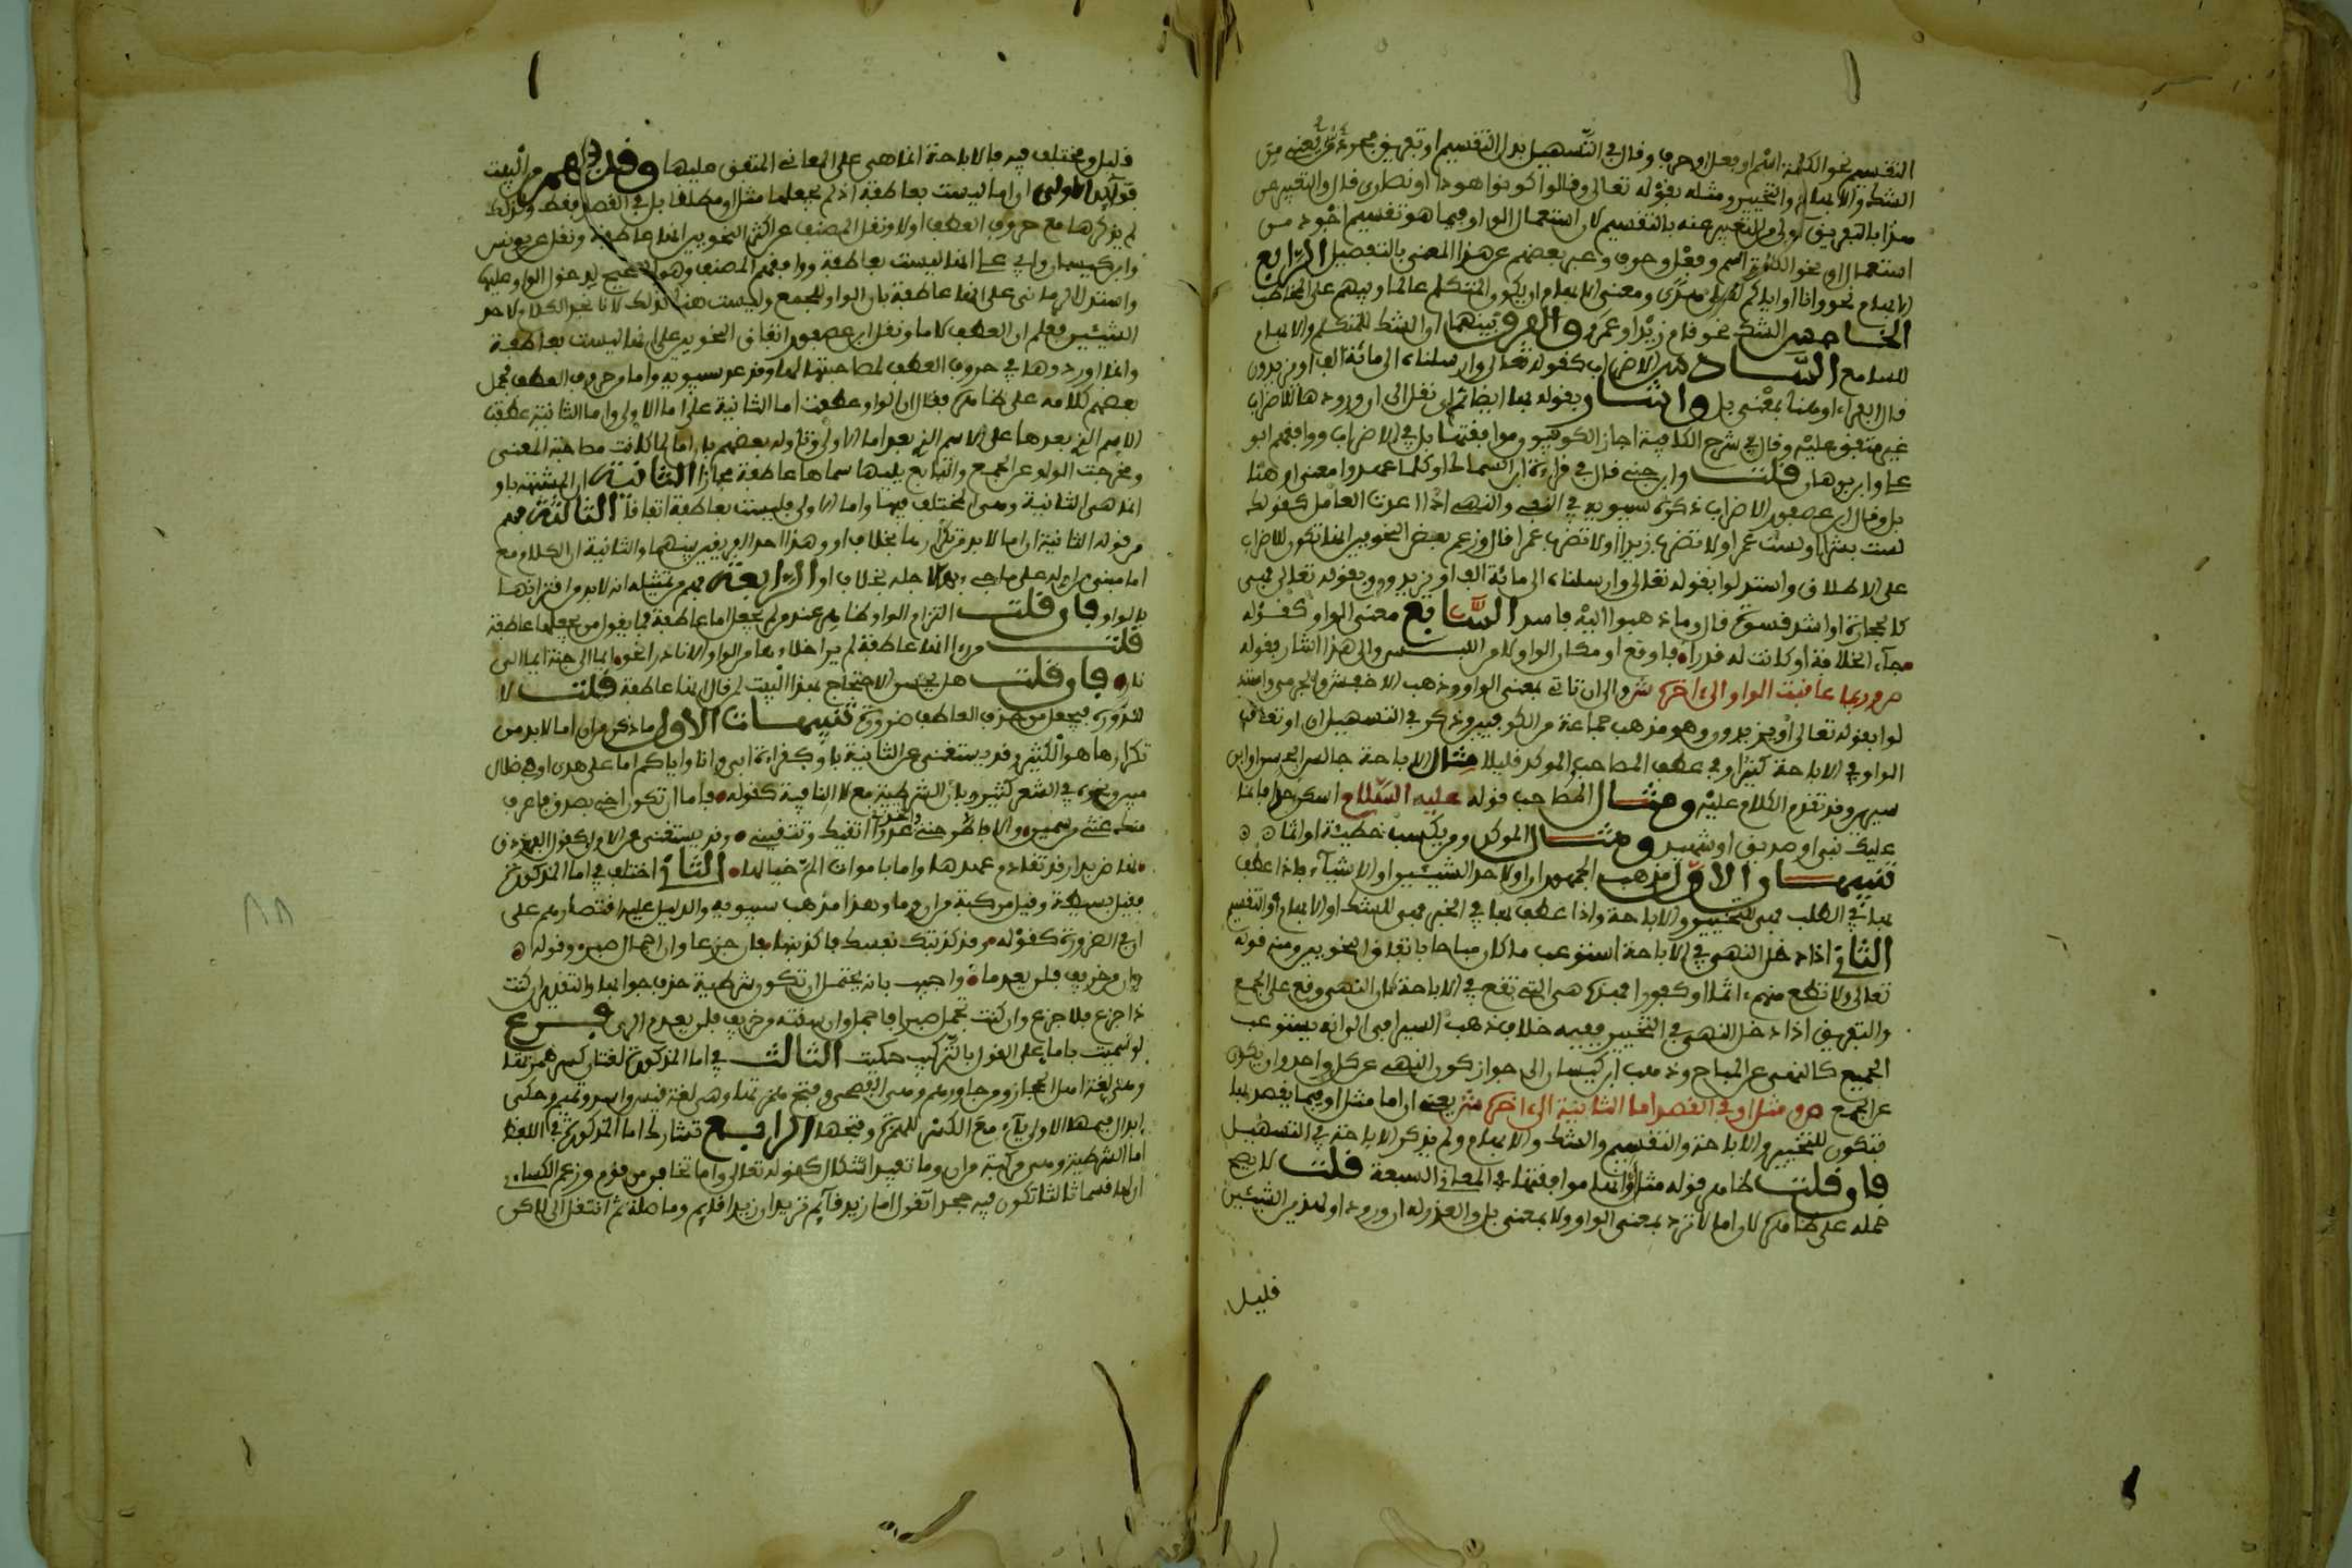 التقسيم نحو الكلمة اسم او فعل او حرف وقال في التسهيل بدل التقسيم او تفريق مجرد يعني من
الشك والابهام والتخيير ومثله بقوله تعالى وقالوا كونوا هودا او نصارى قال والتعبير عن
هذا بالتفريق اولى من التعبير عنه بالتقسيم لان استعمال الواو فيما هو تقسيم اجود من
استعمال او نحو الكلمة اسم وفعل وحرف وعبر بعضهم عن هذا المعنى بالتفصيل الرابع
الابهام نحو وانا او اياكم لعلى هدى ومعنى الابهام ان يكون المتكلم عالما ويبهم على المخاطب
الخامس الشك نحو قام زيد او عمرو والفرق بينهما ان الشك للمتكلم والابهام
للسامع السادس الاضراب كقوله تعالى وارسلناه الى مائة الف او يزيدون
قال الفراء او هنا بمعنى بل واشار بقوله بها ايضا نمي نقل الى ان ورودها للاضراب
غير متفق عليه وقال في شرح الكافية اجاز الكوفيون موافقتها بل في الاضراب ووافقهم ابو
علي وابن برهان قلت وابن جني قال في قراءة ابي السمال او كلما عهدوا معنى او هنا
بل وقال ابن عصفور الاضراب ذكره سيبويه في النفي والنهي اذا اعدت العامل كقولك
لست بشرا او لست عمرا ولا تضرب زيدا او لا تضرب عمرا قال وزعم بعض النحويين انها تكون للاضراب
على الاطلاق واستدلوا بقوله تعالى وارسلناه الى مائة الف او يزيدون وبقوله تعالى فهي
كالحجارة او اشد قسوة قال وما ذهبوا اليه فاسد السابع معنى الواو كقوله
جاء الخلافة او كانت له قدرا فاوقع او مكان الواو لامن اللبس والى هذا اشار بقوله
ص وربما عاقبت الواو الى اخره ش والى ان او تاتي بمعنى الواو ذهب الاخفش والجرمي واستد
لوا بقوله تعالى او يزيدون وهو مذهب جماعة من الكوفيين وذكر في التسهيل ان او تعاقب
الواو في الاباحة كثيرا وفي عطف المصاحب والموكد قليلا مثال الاباحة جالس الحسن او ابن
سيرين وقد تقدم الكلام عليه ومثال المصاحب قوله عليه السلام اسكن حرا فانما
عليك نبي او صديق او شهيد ومثال الموكد ومن يكسب خطيئة او اثما
تنبيهان الاول مذهب الجمهور ان او لاحد الشيئين او الاشياء فاذا عطف
بها في الطلب فهي للتخيير والاباحة واذا عطف بها في الخبر فهي للشك او الابهام او التقسيم
الثاني اذا دخل النهي في الاباحة استوعب ما كان مباحا باتفاق النحويين ومنه قوله
تعالى ولا تطع منهم اثما او كفورا فهذه هي التي تقع في الاباحة لان النهي وقع على الجمع
والتفريق اذا دخل النهي في التخيير ففيه خلاف ذهب السيرافي الى انه يستوعب
الجميع كالنهي عن المباح وذهب ابن كيسان الى جواز كون النهي عن كل واحد وان يكون
عن الجمع ص ومثل او في القصد اما الثانية الى اخره ش يعني ان اما مثل او فيما يقصد بها
فتكون للتخيير والاباحة والتقسيم والشك والابهام ولم يذكر الاباحة في التسهيل
فان قلت ظاهر قوله مثل او انها موافقتها في المعاني السبعة قلت لا يصح
حمله على ظاهره لان اما لا ترد بمعنى الواو ولا بمعنى بل والعذر له ان ورود او لهذين الشيئين
قليل
قليل ومختلف فيه فالاحالة انما هي على المعاني المتفق عليها وقد فهم من البيت
فوائد الاولى ان اما ليست بعاطفة اذ لم يجعلها مثل او مطلقا بل في القصد فقط ولذلك
لم يذكرها مع حروف العطف اولا ونقل المصنف عن اكثر النحويين انها عاطفة ونقل عن يونس
وابن كيسان وابي علي انها ليست بعاطفة ووافقهم المصنف وهو الصحيح لدخول الواو عليها
واستدل الرماني على انها عاطفة بان الواو للجمع وليست هنا كذلك لانا نجد الكلام لاحد
الشيئين فعلم ان العطف لاما ونقل ابن عصفور اتفاق النحويين على انها ليست بعاطفة
وانما اوردوها في حروف العطف لمصاحبتها لها وقد عد سيبويه واما من حروف العطف فحمل
بعضهم كلامه على ظاهره فقال ان الواو عطفت اما الثانية على اما الاولى واما الثانية عطفت
الاسم الذي بعدها على الاسم الذي بعد اما الاولى وتاوله بعضهم بان اما لما كانت صاحبة المعنى
ومخرجت الواو عن الجمع والتابع يليها سماها عاطفة مجازا الثانية ان المشبهة باو
انما هي الثانية وهي المختلف فيها واما الاولى فليست بعاطفة اتفاقا الثالثة فهم
من قوله الثانية ان اما لا بد من تكرارها بخلاف او وهذا احد الفرقين بينهما والثانية ان الكلام مع
اما مبني من اوله على ما جيء بها لاجله بخلاف او الرابعة فهم من تمثيله انه لا بد من اقترانها
بالواو فان قلت التزام الواو ظاهر عند من لم يجعل اما عاطفة فما يقول من يجعلها عاطفة
قلت من راى انها عاطفة لم ير اخلاءها من الواو الا نادرا نحو ايما الى جنة ايما الى
نار فان قلت هل يحسن الاحتجاج بهذا البيت لمن قال انها عاطفة قلت لا
لندوره فيجعل من حذف العاطف ضرورة تنبيهات الاول ما ذكر من ان اما لا بد من
تكرارها هو الكثير وقد يستغنى عن الثانية باو كقراءة ابي وانا واياكم اما على هدى او في ضلال
مبين ونحوه في الشعر كثير وبان الشرطية مع لا النافية كقوله فاما ان تكون اخي بصدق فاعرف
منك غثي من سميني والا فاطرحني واتخذني عدوا اتقيك وتتقيني وقد يستغنى عن الاولى كقول الفرزدق
تهاض بدار قد تقادم عهدها واما باموات الم خيالها الثاني اختلف في اما المذكورة
فقيل بسيطة وقيل مركبة من ان وما وهذا مذهب سيبويه والدليل عليه اقتصارهم على
ان في الضرورة كقوله وقد كذبتك نفسك فاكذبنها فان جزعا وان اجمال صبر وقوله
وان من خريف فلن يعدما واجيب بانه يحتمل ان تكون شرطية حذف جوابها والتقدير ان كنت
ذا جزع فلا جزع وان كنت تجمل صبرا فاجمل وان سقته من خريف فلن يعدم الري فرع
لو سميت باما على القول بالتركيب حكيت الثالث في اما المذكورة لغتان كسر همزتها
وهي لغة اهل الحجاز ومن جاورهم وهي الفصحى وفتح همزتها وهي لغة قيس واسد وتميم وحكي
ابدال ميمها الاولى ياء مع الكسر للهمزة وفتحها الرابع تشارك اما المذكورة في اللفظ
اما الشرطية وهي مركبة من ان وما بغير اشكال كقوله تعالى واما تخافن من قوم وزعم الكسائي
ان لها قسما ثالثا تكون فيه جحدا تقول اما زيد قائم تريد ان زيد قائم وما صلة ثم انتقل الى لاكن
٨٨